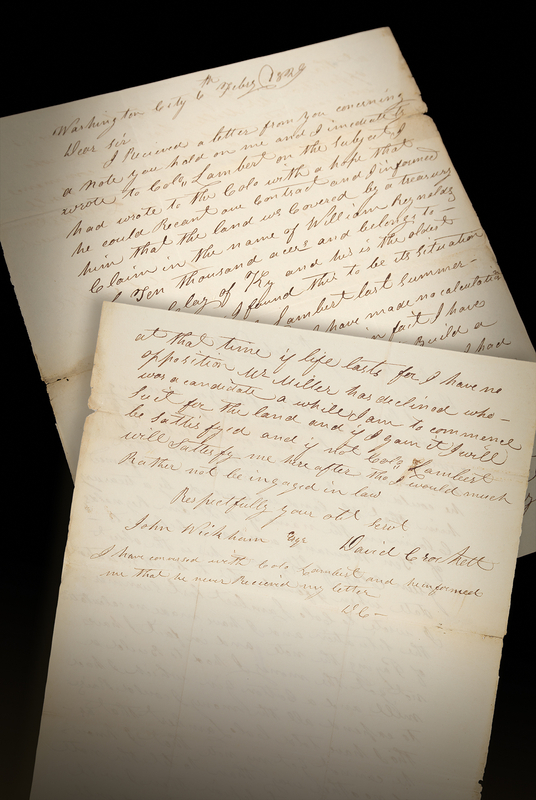 Washington City 6th Febry 1829
Dear Sir
I Recieved a letter from you concerning
a note you hold on me and I imediately
wrote to Colo Lambert on the subject I
had wrote to the Colo with a hope that
he could Recant our Contract and I informed
him that the land was Covered by a treasury
Claim in the name of William Reynolds
Ten thousand acres and belongs to
Clay of Ky and his is the oldest
I found this to be its Situation
Lambert last summer-
I have made no calculation
in fact I have
Build a
I had
at that time if life lasts for I have no
opposition Mr Miller has declined who-
was a candidate a while I am to commence
suit for the land and if I gain it I will
be sattisfyed and if not Colo Lambert
will sattisfy me here after tho I would much
Rather not be ingaged in law
Respectfully your obt Servt
John Wickham Esqr David Crockett
I have conversed with Colo Lambert and he informed
me that he never Recieved my letter
D C-